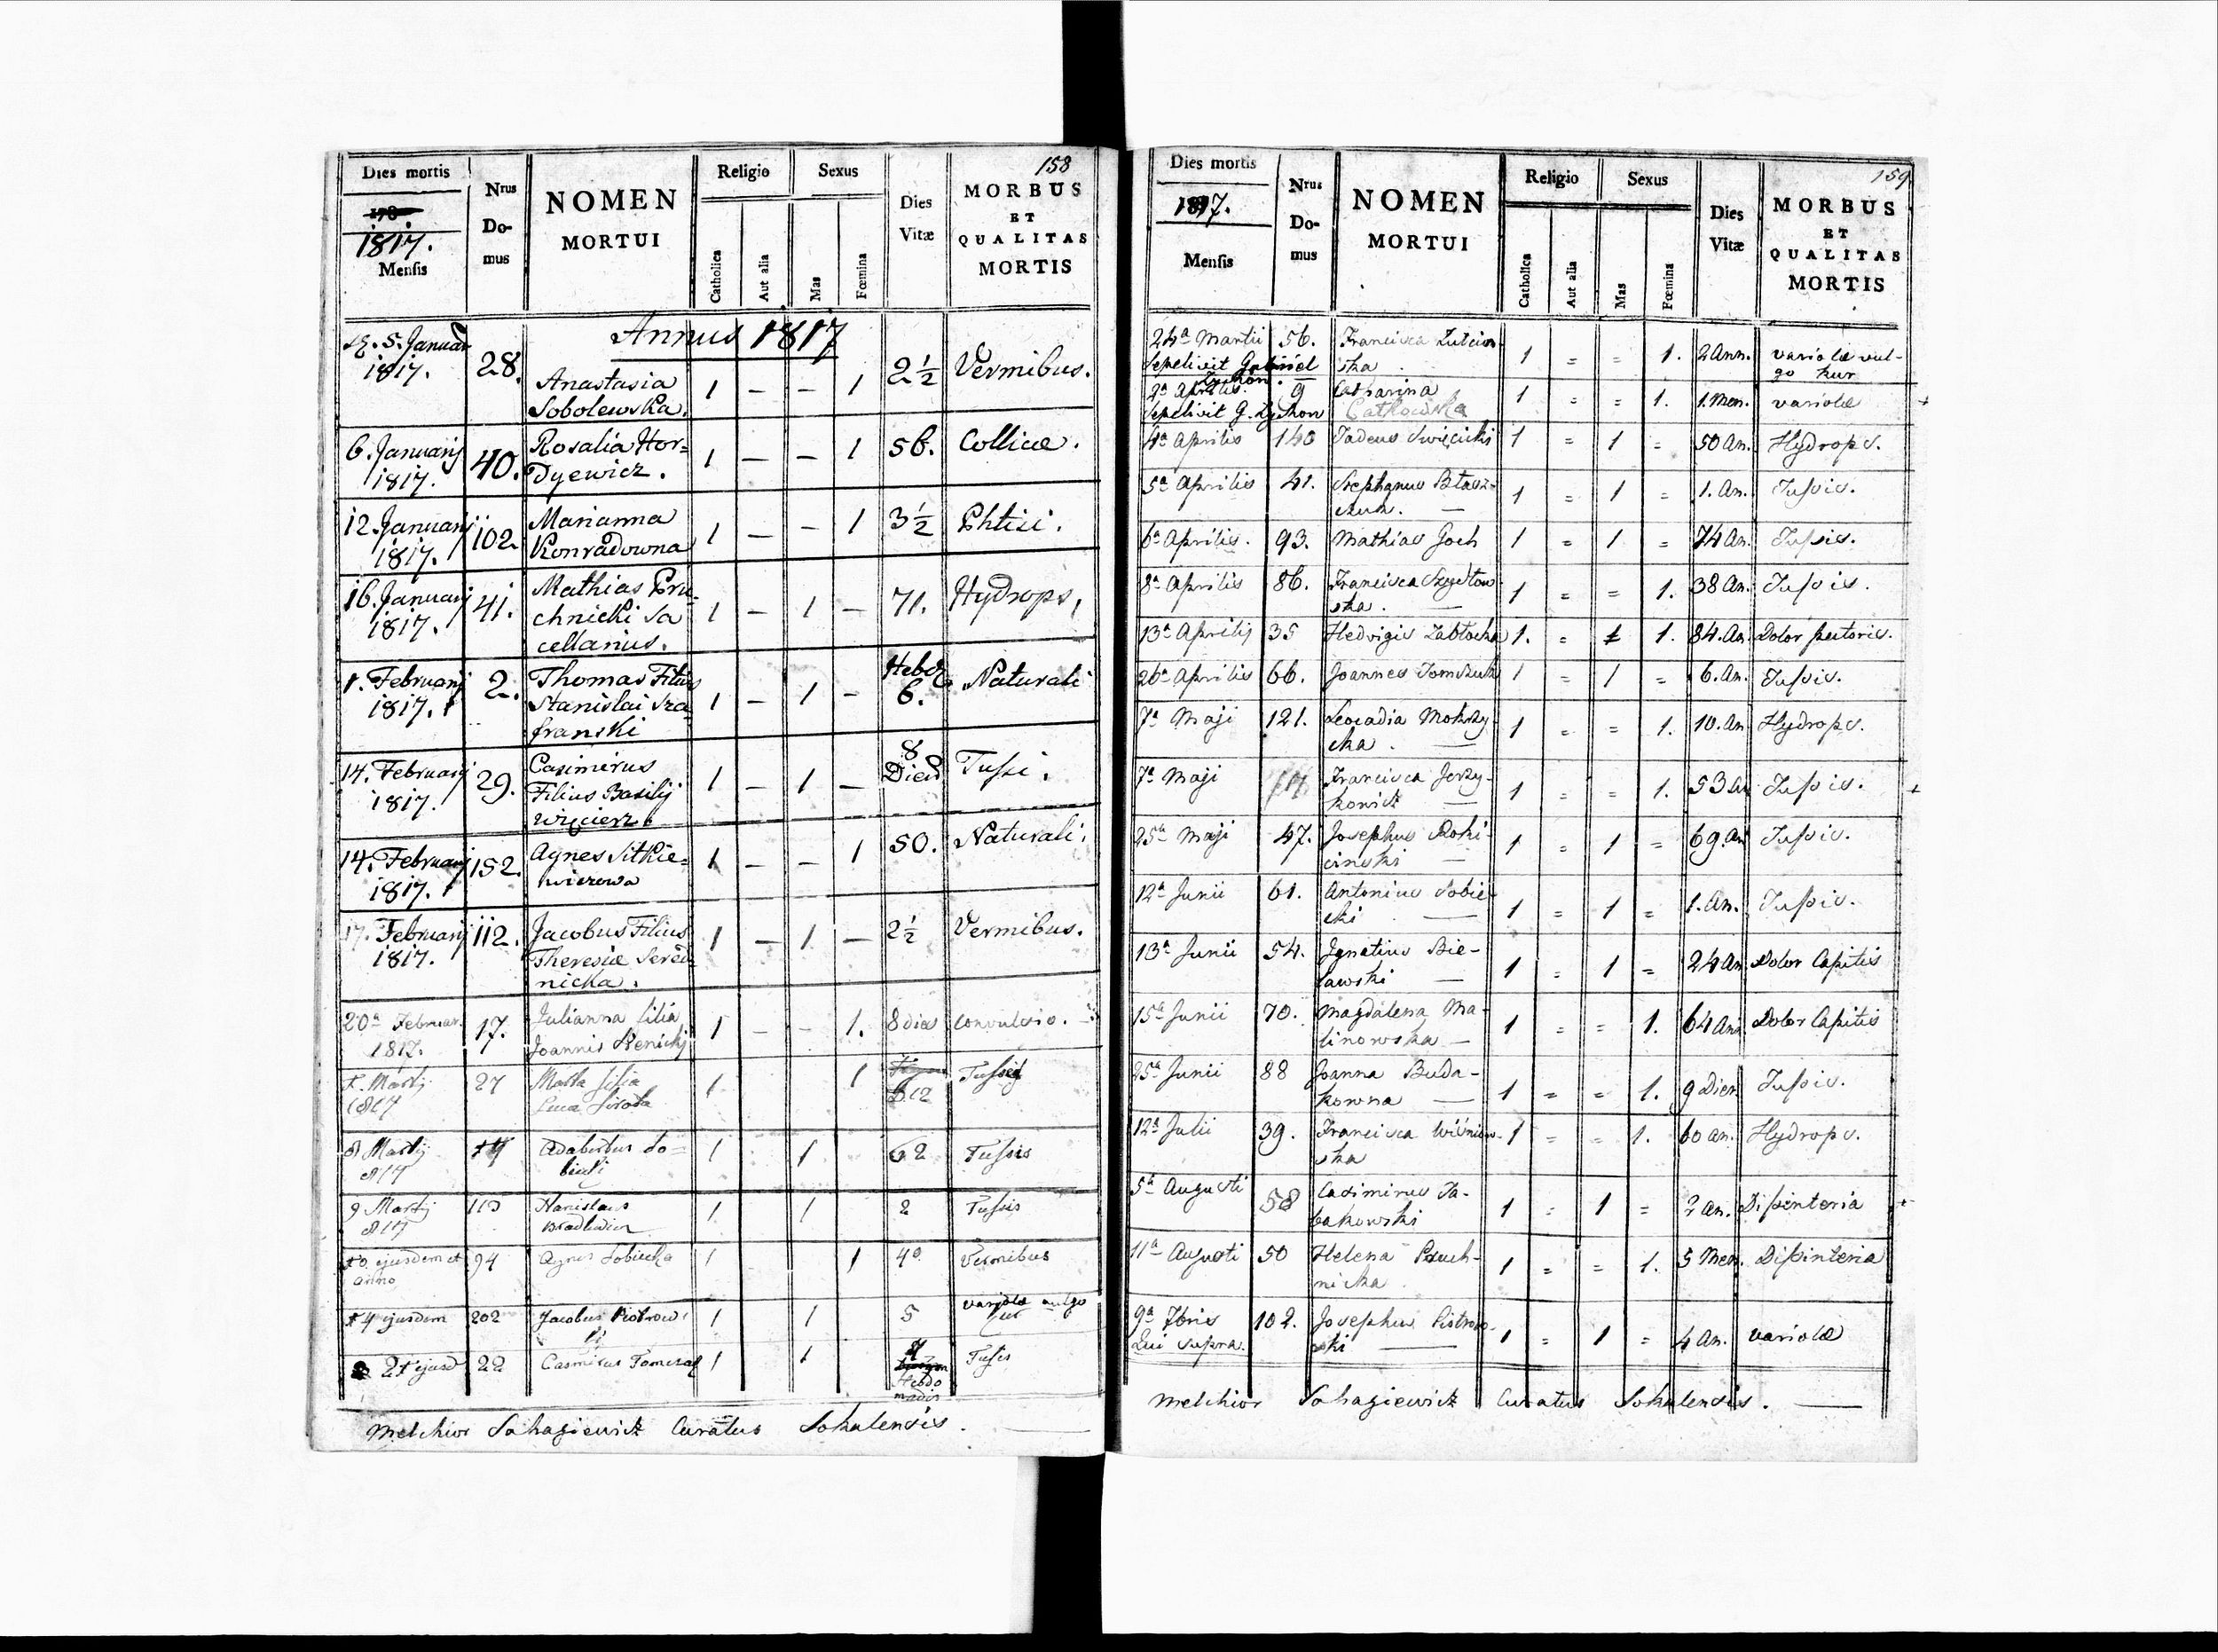 158
Dies mortis
1817.
Mensis
Nrus
Do-
mus
NOMEN
MORTUI
Religio
Catholica
Aut alia
Sexus
Mas
Fœmina
Dies
Vitæ
MORBUS
ET
QUALITAS
MORTIS
Annus 1817
5. Januar
1817.
28.
Anastasia
Sobolewska.
1 — — 1
2½
Vermibus.
6. Januarij
1817.
40.
Rosalia Hor=
Dyewicz.
1 — — 1
56.
Collicæ.
12. Januarij
1817.
102.
Marianna
Konradowna
1 — — 1
3½
Phtisi.
16. Januarij
1817.
41.
Mathias Pru-
chnicki Sa
cellanius.
1 — 1 —
71.
Hydrops,
1. Februarij
1817.
2.
Thomas Filius
Stanislai Sza
franski
1 — 1 —
Hebd
6.
Naturali
14. Februarij
1817.
29.
Casimirus
Filius Basilij
Wijcierz.
1 — 1 —
8
Dies
Tussi.
14. Februarij
1817.
152.
Agnes Sitkie=
wiczowa
1 — — 1
50.
Naturali.
17. Februarij
1817.
112.
Jacobus Filius
Theresiæ Sered
nicka.
1 — 1 —
2½
Vermibus.
20a Februar.
1817.
17.
Julianna filia
Joannis
1 — — 1.
8 dies
Convulsio.
Martij
1817
27
Martha filia
Luca
1 1
12
Tussis
8 Martij
817
Adalbertus So=
biecki
1 1
62
Tussis
9 Martij
817
113
Stanislaus
1 1
2
Tussis
10 ejusdem et
anno
94
Agnes Sobiecka
1 1
40
Vermibus
14 ejusdem
202
Jacobus Piotrow
ski
1 1
5
variola vulgo
kur
21 ejusd
22
Casimirus Tomczak
1 1
Hebdo
madis
Tussis
Melchior Sahagiewicz Curatus Sokalensis.
159
Dies mortis
1817.
Mensis
Nrus
Do-
mus
NOMEN
MORTUI
Religio
Catholica
Aut alia
Sexus
Mas
Fœmina
Dies
Vitæ
MORBUS
ET
QUALITAS
MORTIS
24a Martii
Sepelivit Gabriel
Lychon.
56.
Francisca
ska
1 = = 1.
2 Ann.
variolæ vul-
go kur
2a Aprilis.
Sepelivit G. Lychon
9
Catharina
1 = = 1.
1. Men.
variolæ
4a Aprilis
140
Tadeus Swięcicki
1 = 1 =
50 An.
Hydrops.
5a Aprilis
41.
Stephanus Błasz-
czuk.
1 = 1 =
1. An.
Tussis.
6a Aprilis.
93.
Mathias Goch
1 = 1 =
74 An.
Tussis.
8a Aprilis
86.
Francisca Szydłow
ska.
1 = = 1.
38 An.
Tussis.
13a Aprilis
35
Hedvigis Zabłocka
1. = 1.
84. An.
Dolor pectoris.
26a Aprilis
66.
Joannes Tomczuk
1 = 1 =
6. An.
Tussis.
7a Maji
121.
Leocadia Mokrzy
cka.
1 = = 1.
10. An
Hydrops.
7a Maji
Francisca Jerzy-
kowicz
1 = = 1.
53 An
Tussis.
25a Maji
47.
Josephus Roki-
cinski
1 = 1 =
69. An
Tussis.
12a Junii
61.
Antonius Sobie-
cki
1 = 1 =
1. An.
Tussis.
13a Junii
54.
Ignatius Bie-
lawski
1 = 1 =
24 An.
Dolor Capitis
15a Junii
70.
Magdalena Ma-
linowska
1 = = 1.
64 An
Dolor Capitis
25a Junii
88
Joanna Buda-
kowna
1 = = 1.
9 Dier
Tussis.
12a Julii
39.
Francisca Wiśniow-
ska
1 = = 1.
60 an.
Hydrops.
5a Augusti
58
Casimirus Ta-
bakowski
1 = 1 =
2 an.
Dissenteria
11a Augusti
50
Helena Pruch-
nicka
1 = = 1.
5 Men.
Dissinteria
9a 7bris
Qui supra.
102.
Josephus Piotrow-
ski
1 = 1 =
4 An.
variolæ
Melchior Sahagiewicz Curatus Sokalensis.